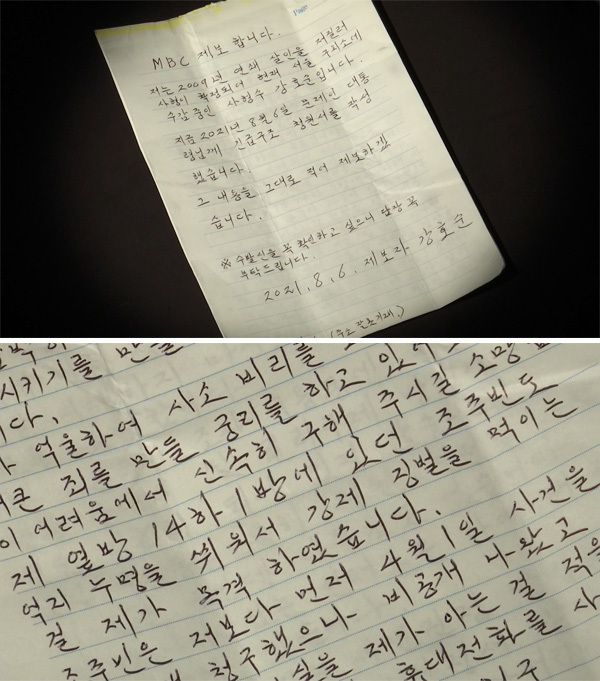 MBC 제보 합니다.
저는 2009년 연쇄 살인을 저질러
사형이 확정되어 현재 서울 구치소에
수감 중인 사형수 강호순입니다.
지금 2021년 8월 6일 문재인 대통
령님께 긴급구조 청원서를 작성
했습니다.
그 내용을 그대로 적어 제보하겠
습니다.
※ 수발신을 꼭 확인하고 싶으니 답장 꼭
부탁드립니다.
2021. 8. 6. 제보자 강호순
시키기를 만들
니다. 사소 비리를
억울하여 궁리를 하고 있
큰 죄를 만들 신속히 구해 주시길 소망
이 어려움에서
제 옆방 14하1방에 있던 조주빈도
억지 누명을 씌워서 강제 징벌을 먹이는
걸 제가 목격 하였습니다.
조주빈은 저보다 먼저 4월 1일 사건을
청구했으나 비공개 나왔고
제가 아는 걸 적을
휴대전화를 사